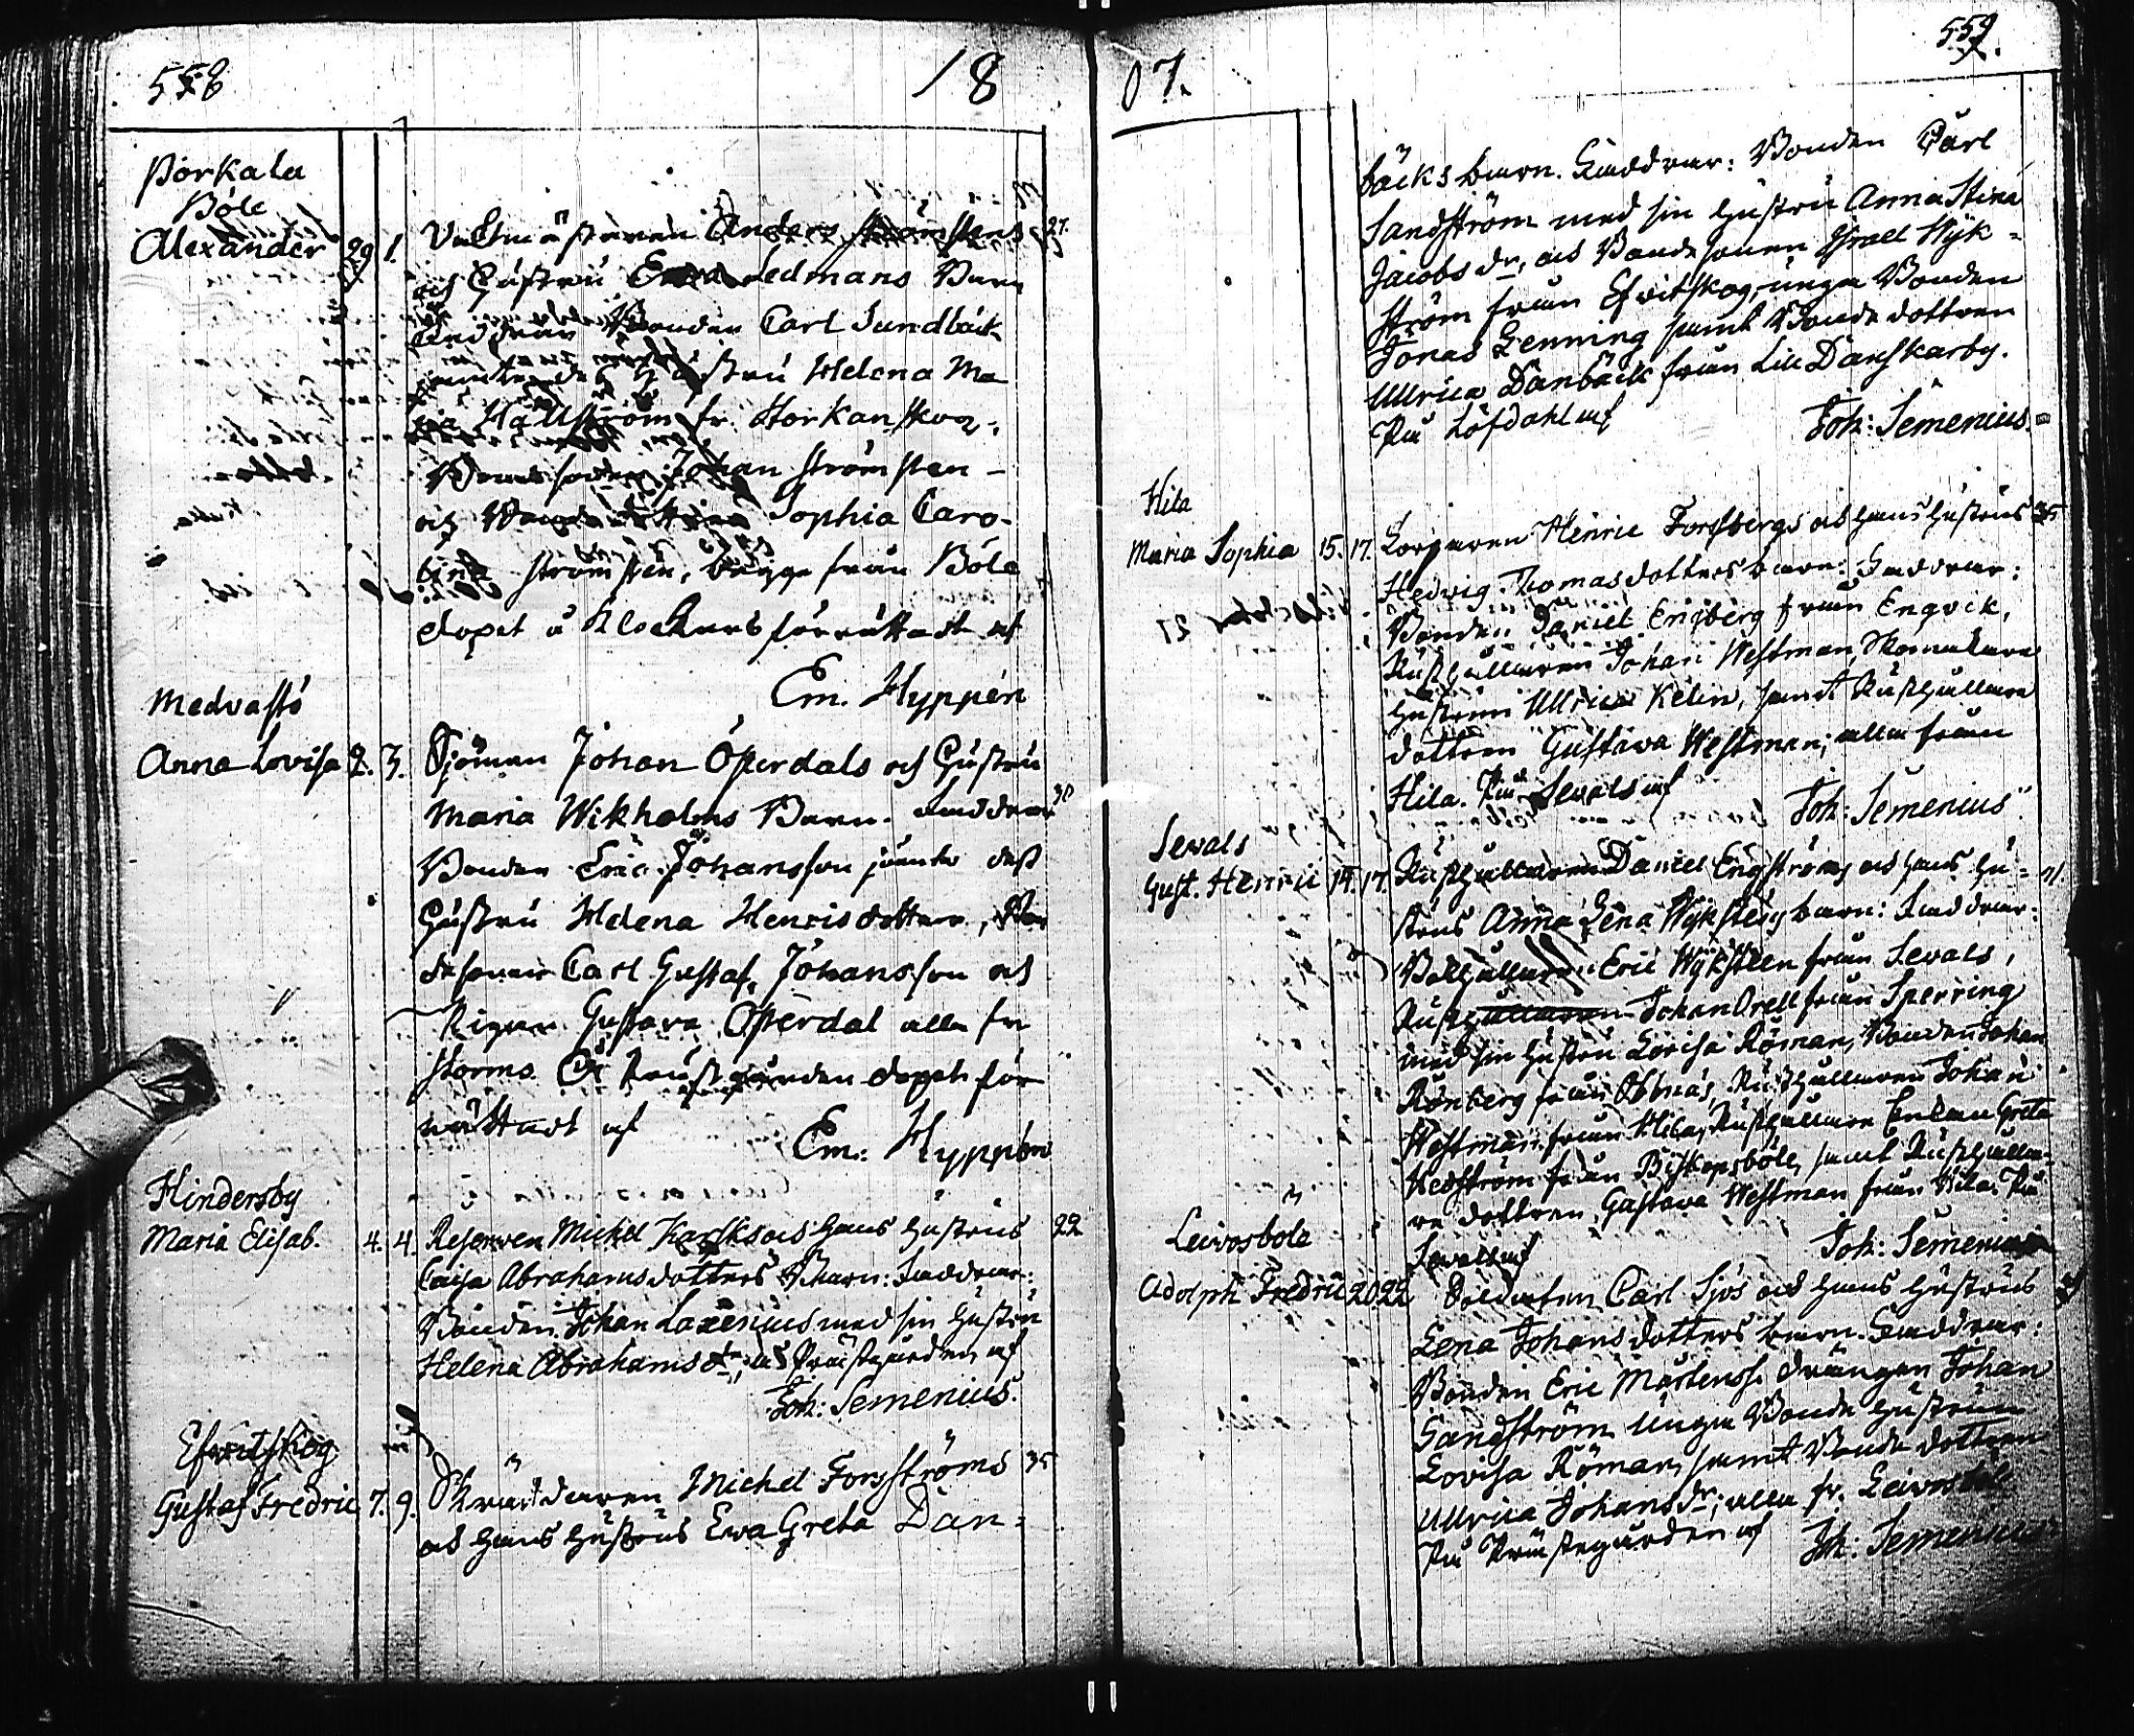 558
18
Porkala
Böle
Alexander 29 1. Vaktmästaren Anders Strömstens 27.
och Hustru Ledmans Barn
Bonden Carl Sundbäck
Hustru Helena Ma
ria Hällström fr. Störkanskog,
Johan Strömsten
och Sophia Caro-
lina Strömsten, bägge från Böle
dopet å Klockars förrättadt af
Em. Hyppén
Medvastö
Anna Lovisa 2. 3. Sjöman Johan Österdals och Hustru
Maria Wikholms Barn. Faddrar 30
Bonden Eric Johansson jämte dess
Hustru Helena Henrisdotter, Bon
desonen Carl Gustaf Johansson och
Pigan Gustava Österdal alla fr
Storms. På Prästgården dopet för
rättadt af
Em: Hyppén
Hindersby
Maria Elisab. 4. 4. Reserven Michel Karsks och hans hustrus 22
Caisa Abrahamsdotters Barn: Faddrar:
Bonden Johan Laxenius med sin hustru
Helena Abrahams dr, På Prästgården af
Joh: Semenius.
Esvitskog
Gustaf Fredric 7. 9. Skräddaren Michel Forsströms 35
och hans hustrus Ewa Greta Dan=
07.
559.
bäcks barn. Faddrar: Bonden Carl
Sandström med sin hustru Anna Stina
Jacobs dr, och Bondesonen Israel Wyk=
ström från Esvitskog, unga Bonden
Jonas Henning samt Bonde dottren
Ullrica Danbäck från Lill Danskarby.
På Löfdahl af Joh: Semenius.
Hila
Maria Sophia 15. 17. Torparen Henric Forssbergs och hans hustrus 35
Hedvig Thomasdotters barn: Faddrar:
Bonden Daniel Engberg från Engvik,
Rusthållaren Johan Westman, Skomakare
hustrun Ullrica Kelin, samt Rusthållare
dottren Gustava Westman; alla från
Hila. På Sewals af Joh: Semenius.
Sewals
Gust. Henric 14. 17. Rusthållaren Daniel Engströms och hans hu=
strus Anna Lena Wykstens barn: Faddrar:
Bolhållaren Eric Wyksten från Sewals,
Rusthållaren Johan Orell från Sperring
med sin hustru Lovisa Röman, Bonden Johan
Rönberg från Obbnäs, Rusthållaren Johan
Westman från Hila, Rusthållare Enkan Greta
Hedström från Biskopsböle, samt Rusthålla=
re dottren Gustava Westman från Hila. På
Sewals af Joh: Semenius
Leivosböle
Adolph Fredric 20 22 Soldaten Carl Sjös och hans hustrus
Lena Johansdotters barn. Faddrar:
Bonden Eric Mårtenss. drängen Johan
Sandström unga Bonde hustrun
Lovisa Röman, samt Bonde dottren
Ullrica Johans dr; alla fr. Leivosböle
På Prästegården af Joh: Semenius